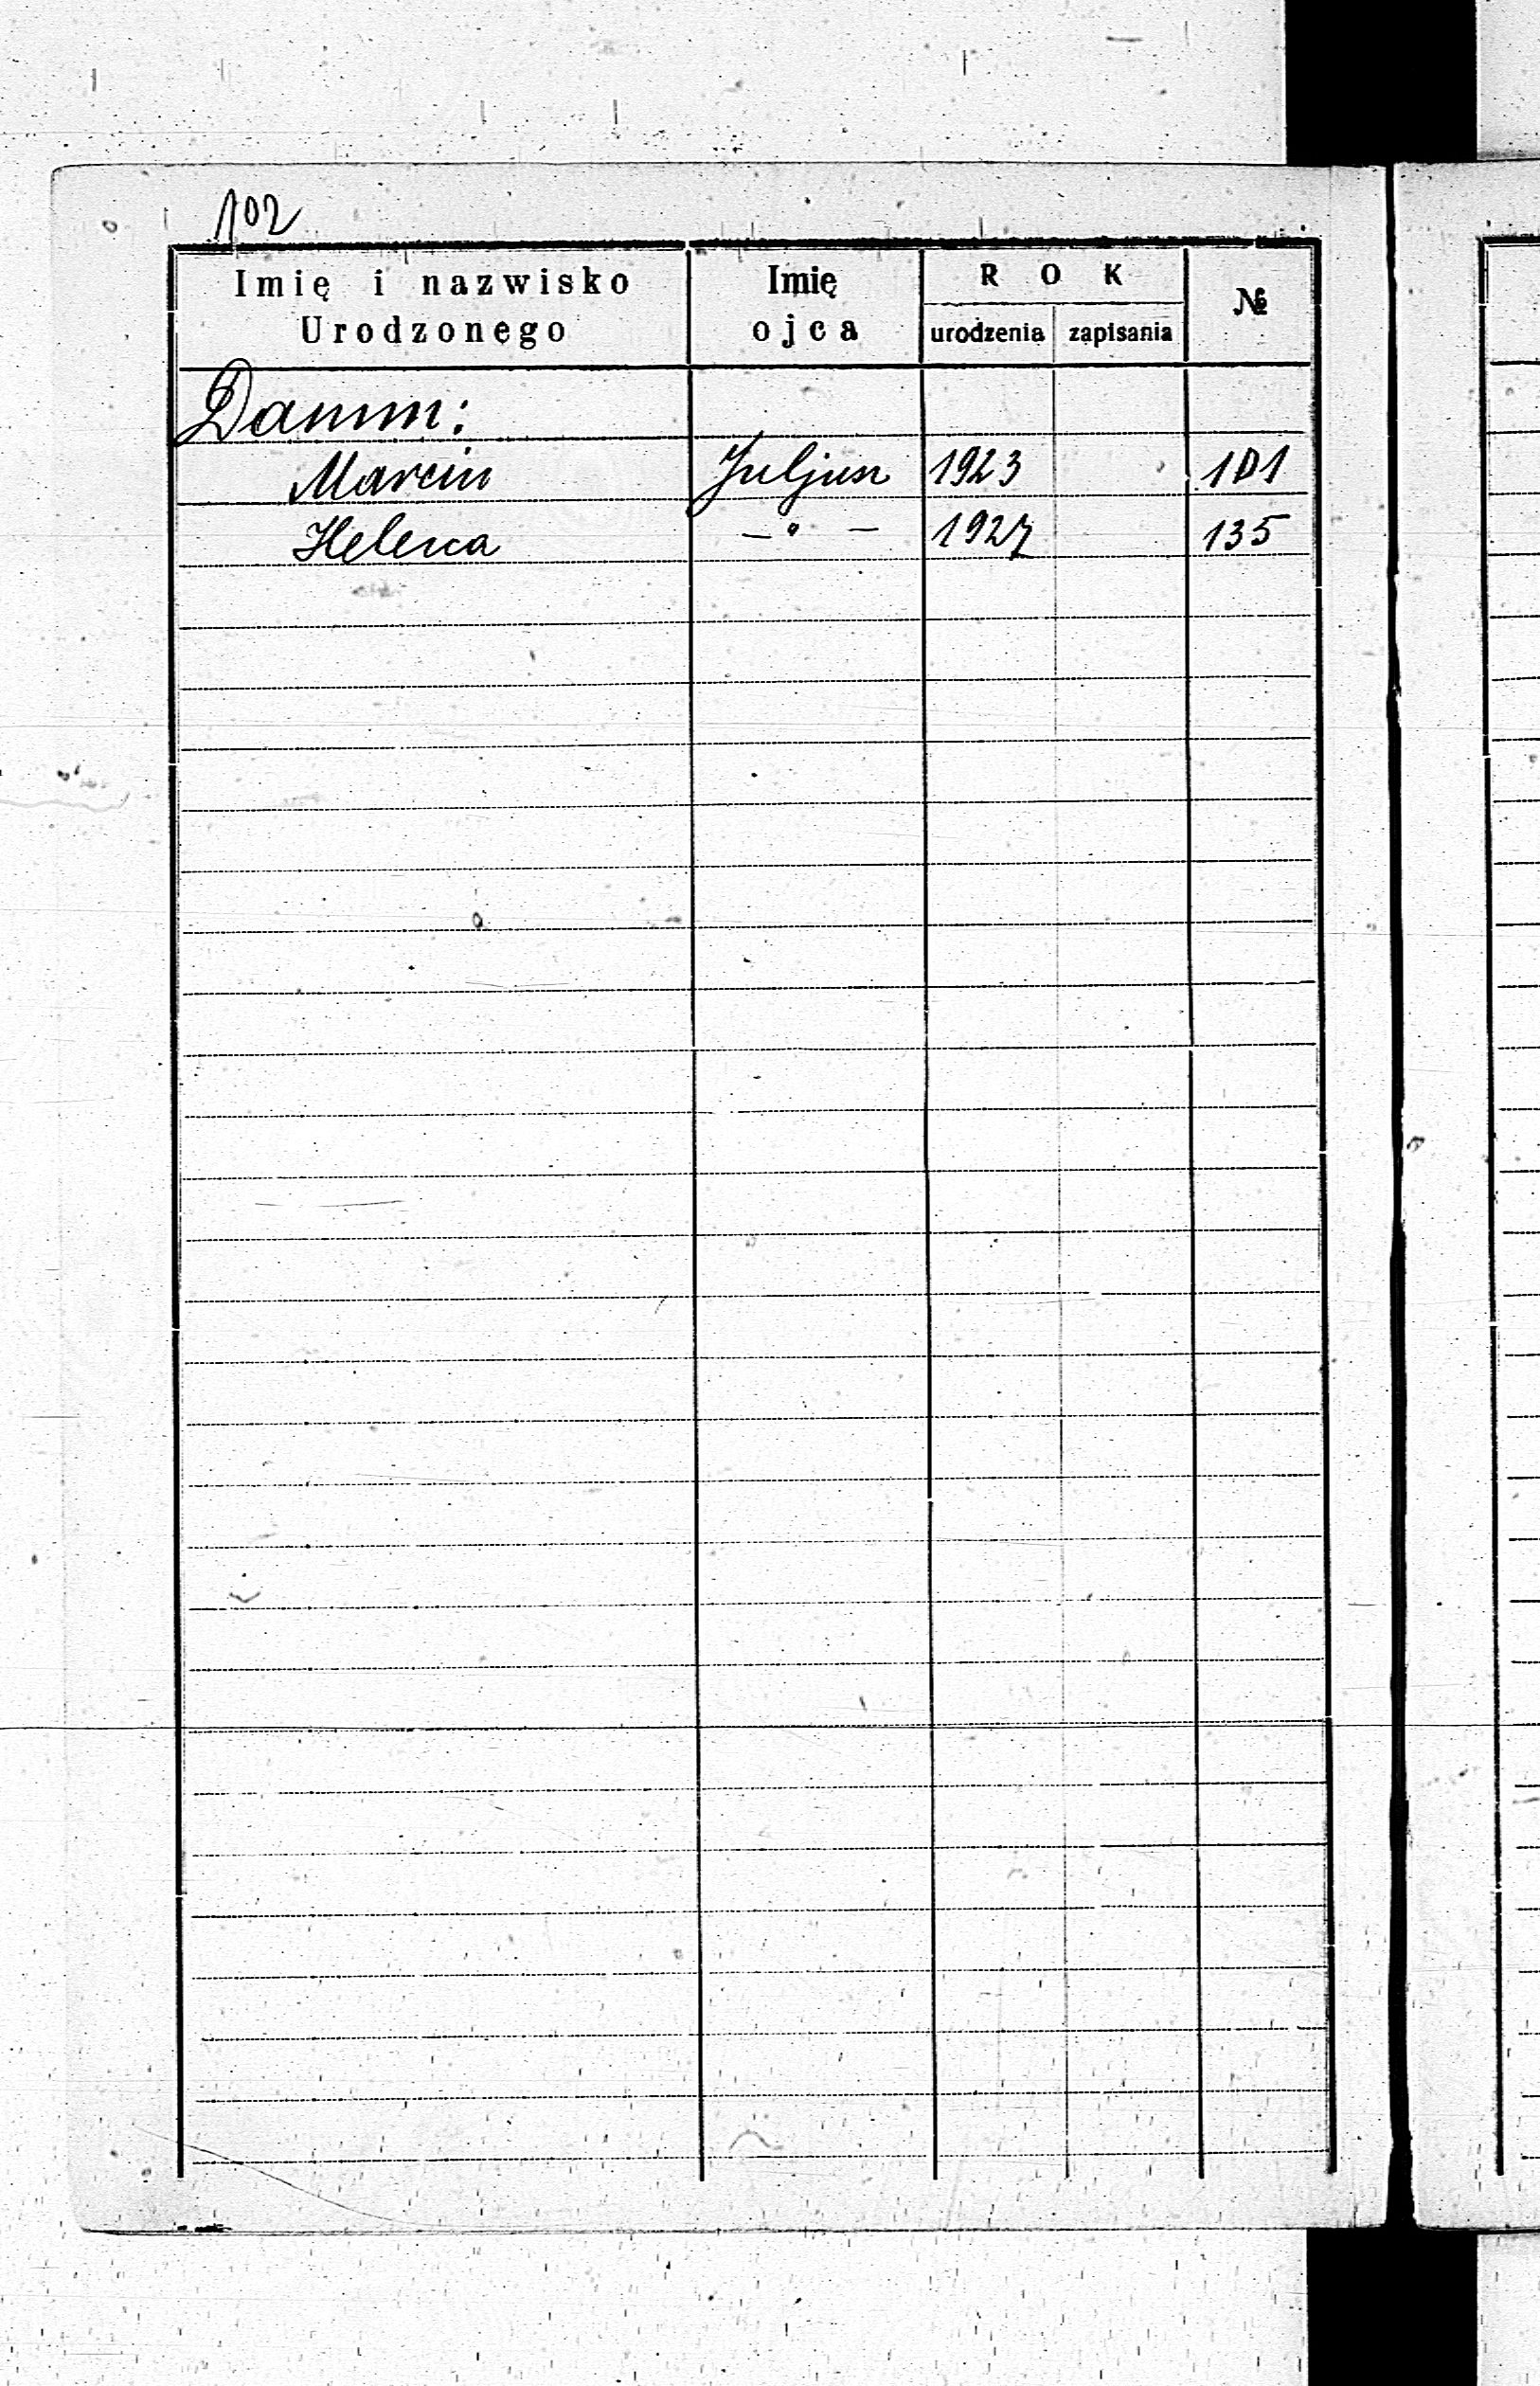 102
Imię i nazwisko Urodzonego Imię ojca ROK urodzenia zapisania №
Damm:
Marcin Juljusz 1923 101
Helena — " — 1927 135